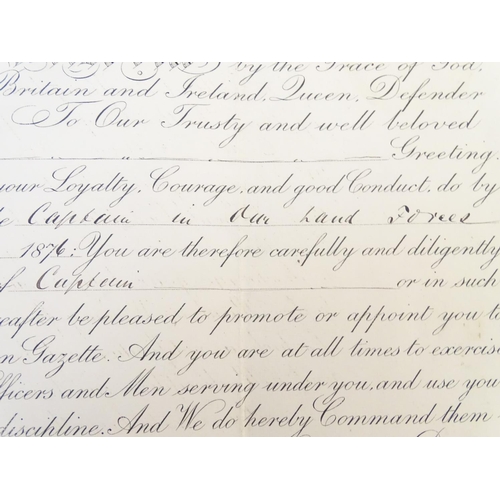 by the Grace of God,
Britain and Ireland, Queen, Defender
To Our Trusty and well beloved
Greeting,
your Loyalty, Courage, and good Conduct, do by
Captain in Our Land Forces
1876; You are therefore carefully and diligently
of Captain or in such
eafter be pleased to promote or appoint you to
on Gazette. And you are at all times to exercise
fficers and Men serving under you, and use you
discipline. And We do hereby Command them